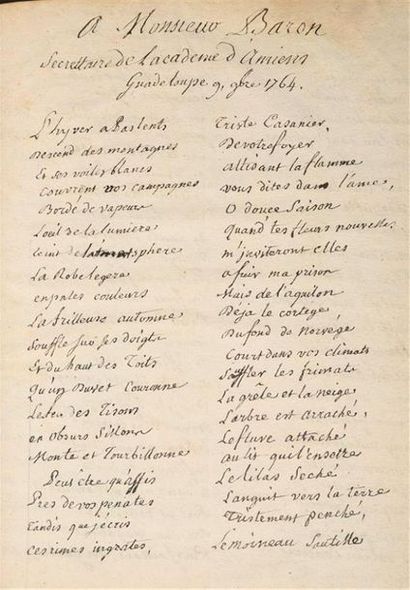 A Monsieur Baron
Secrettaire de Lacademe d'Amiens
Guadeloupe 9. gbre 1764.
L'hyver a Pas lents
Descend des montagnes
Et ses voiles blancs
Couvrent vos campagnes
Bordé de vapeurs
L'oeil de la lumiere
teint de
La Robe legere
en pales couleurs
La frilleuse automne
Souffle sur ses doigts
Et du haut des Toits
Qu'un Duvet Couronne
Le feu des Tisons
en obscurs Sillons
Monte et Tourbillonne
Peut être qu'assis
Pres de vos penates
Tandis que j'ecris
ces rimes ingrates,
Triste Casanier,
De votre foyer
attisant la flamme
vous dites dans l'ame,
O douce Saison
Quand tes fleurs nouvelles
m'inviteront elles
a fuir ma prison
Mais de l'aquilon
Déja le cortege,
Du fond de Norvege
Court dans vos climats
Souffler les frimats
La grêle et la neige
L'arbre est arraché,
Le fleuve attaché
au lit qui l'ensorre
Le lilas Seché
Languit vers la terre
Tristement penché,
Le moineau Sautille